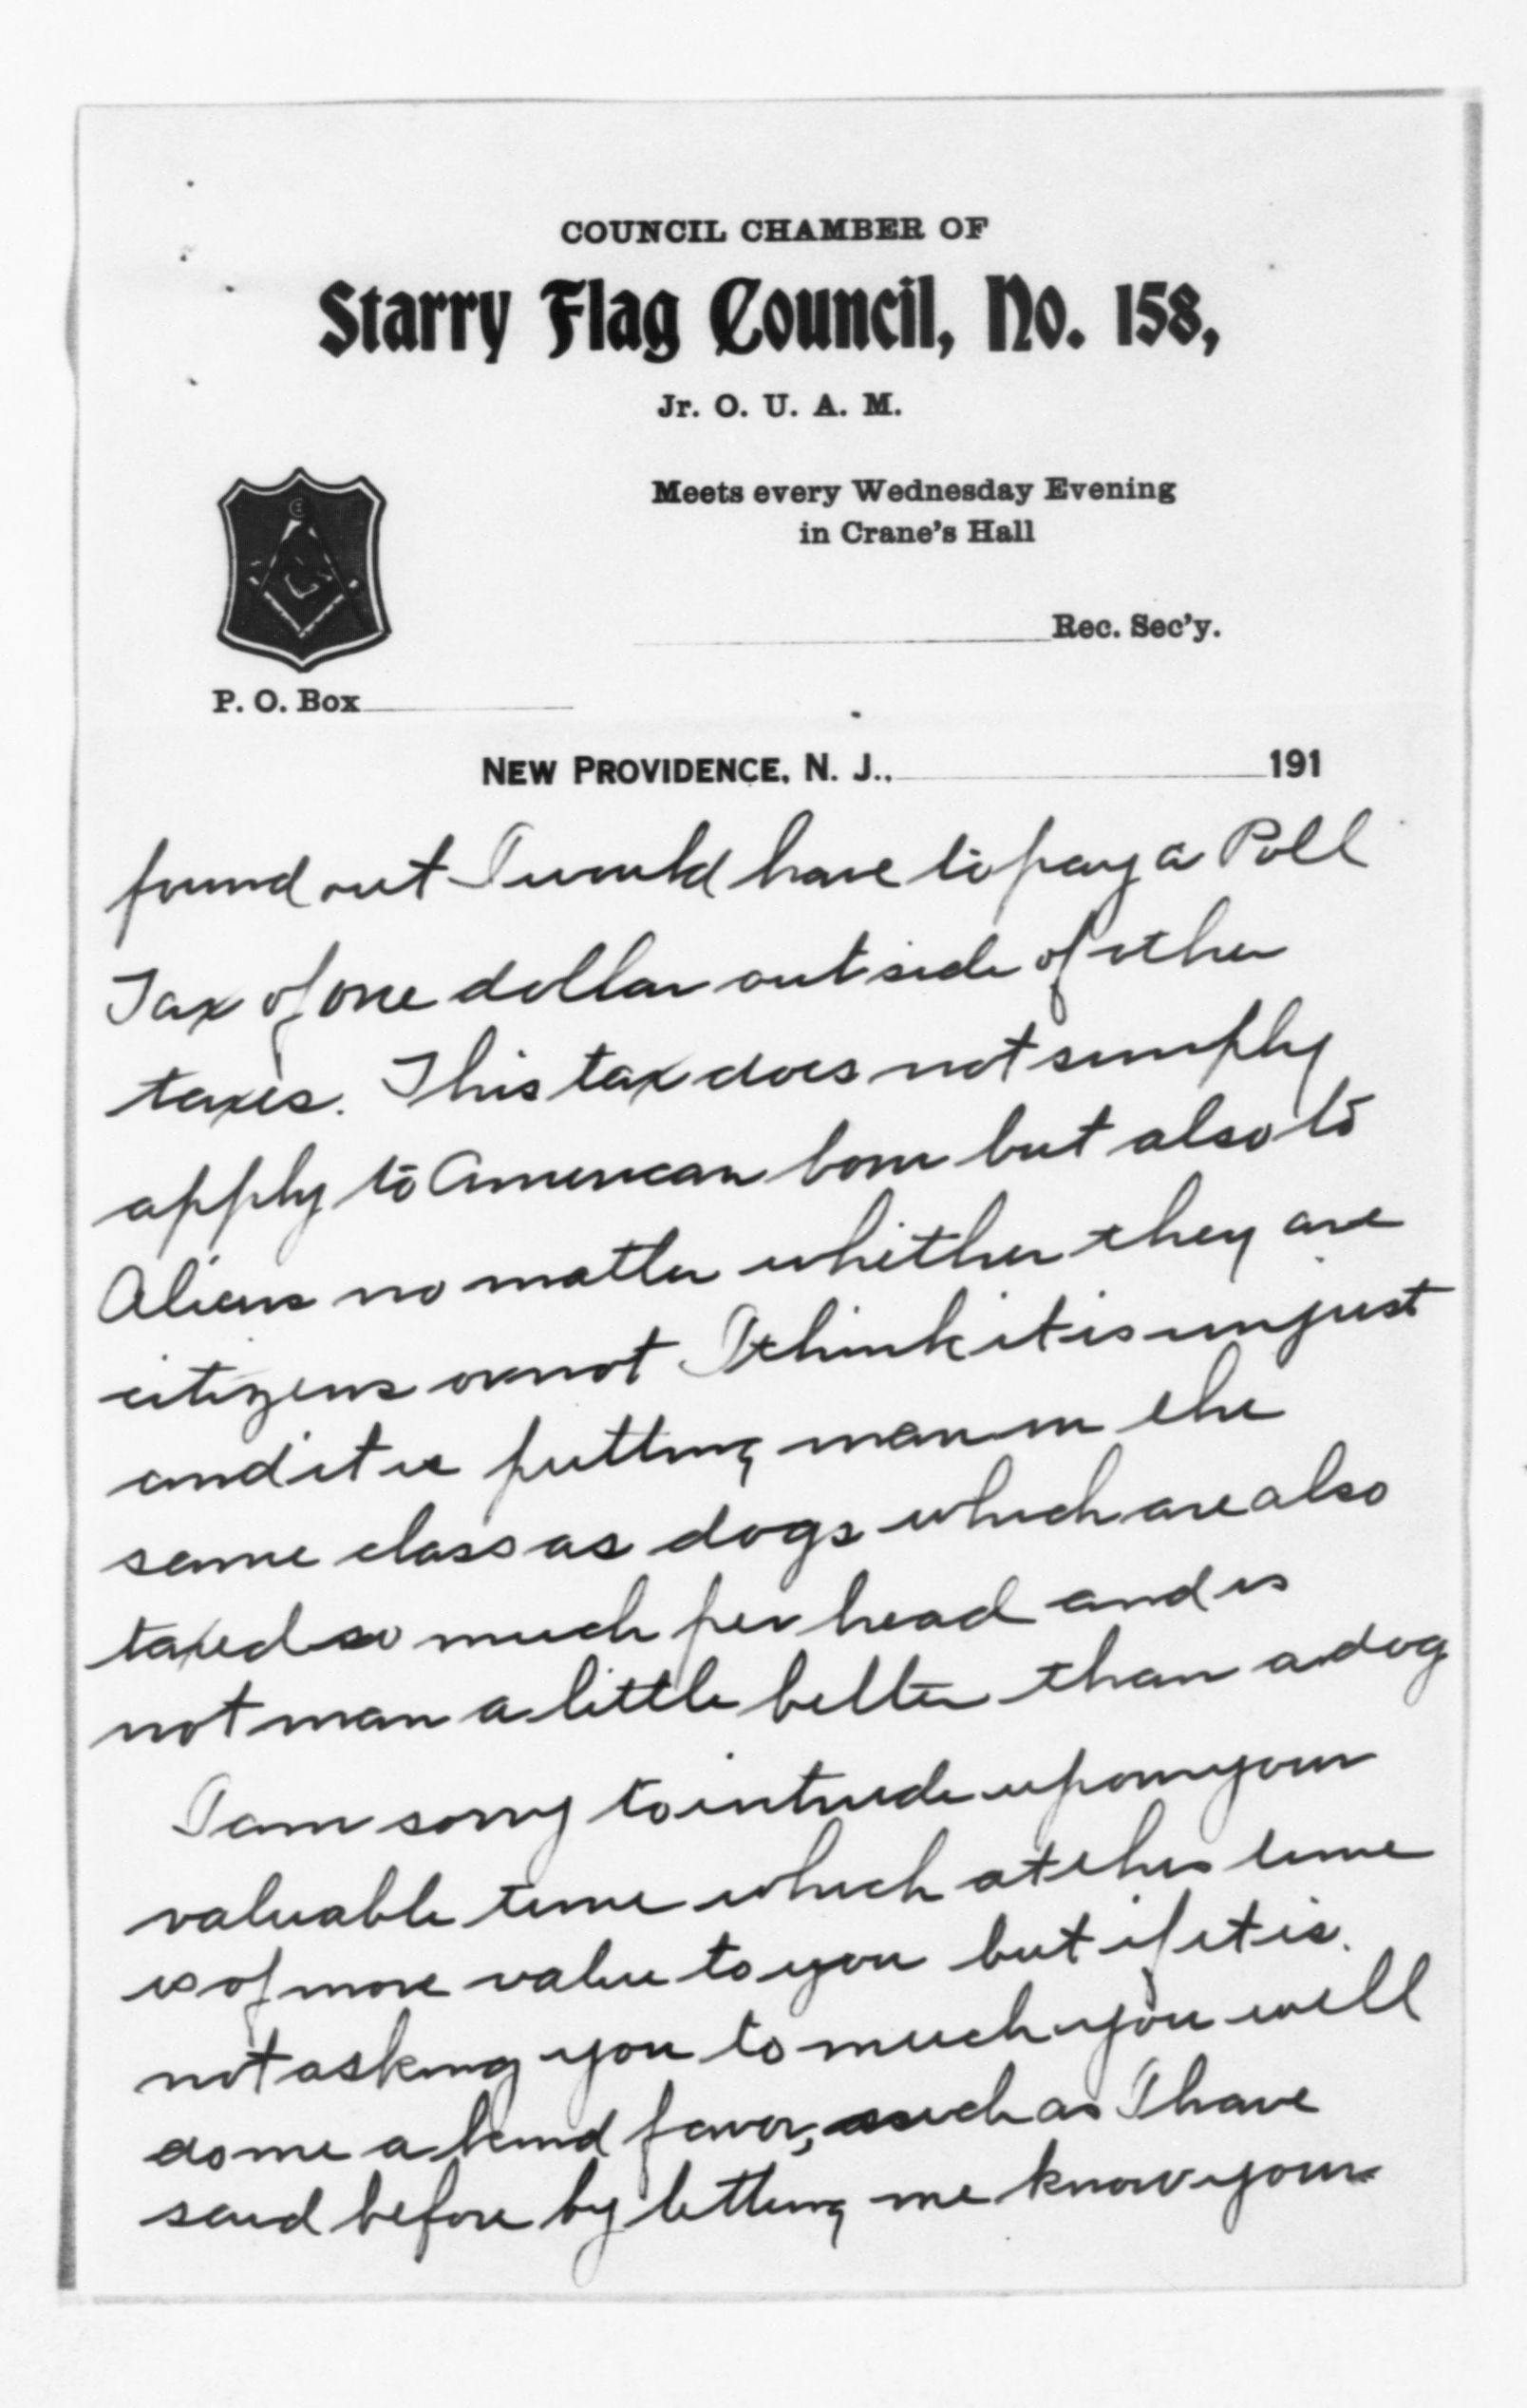 COUNCIL CHAMBER OF
Starry Flag Council, No. 158,
Jr. O. U. A. M.
Meets every Wednesday Evening
in Crane's Hall
Rec. Sec'y.
P. O. Box
NEW PROVIDENCE, N. J., 191
found out I would have to pay a Poll
Tax of one dollar outside of other
taxes. This tax does not simply
apply to American born but also to
Aliens no matter whither they are
citizens or not I think it is unjust
and it is putting man in the
same class as dogs which are also
taxed so much per head and is
not man a little better than a dog
I am sorry to intrude upon your
valuable time which at this time
is of more value to you but if it is
not asking you to much you will
do me a kind favor, such as I have
said before by letting me know your